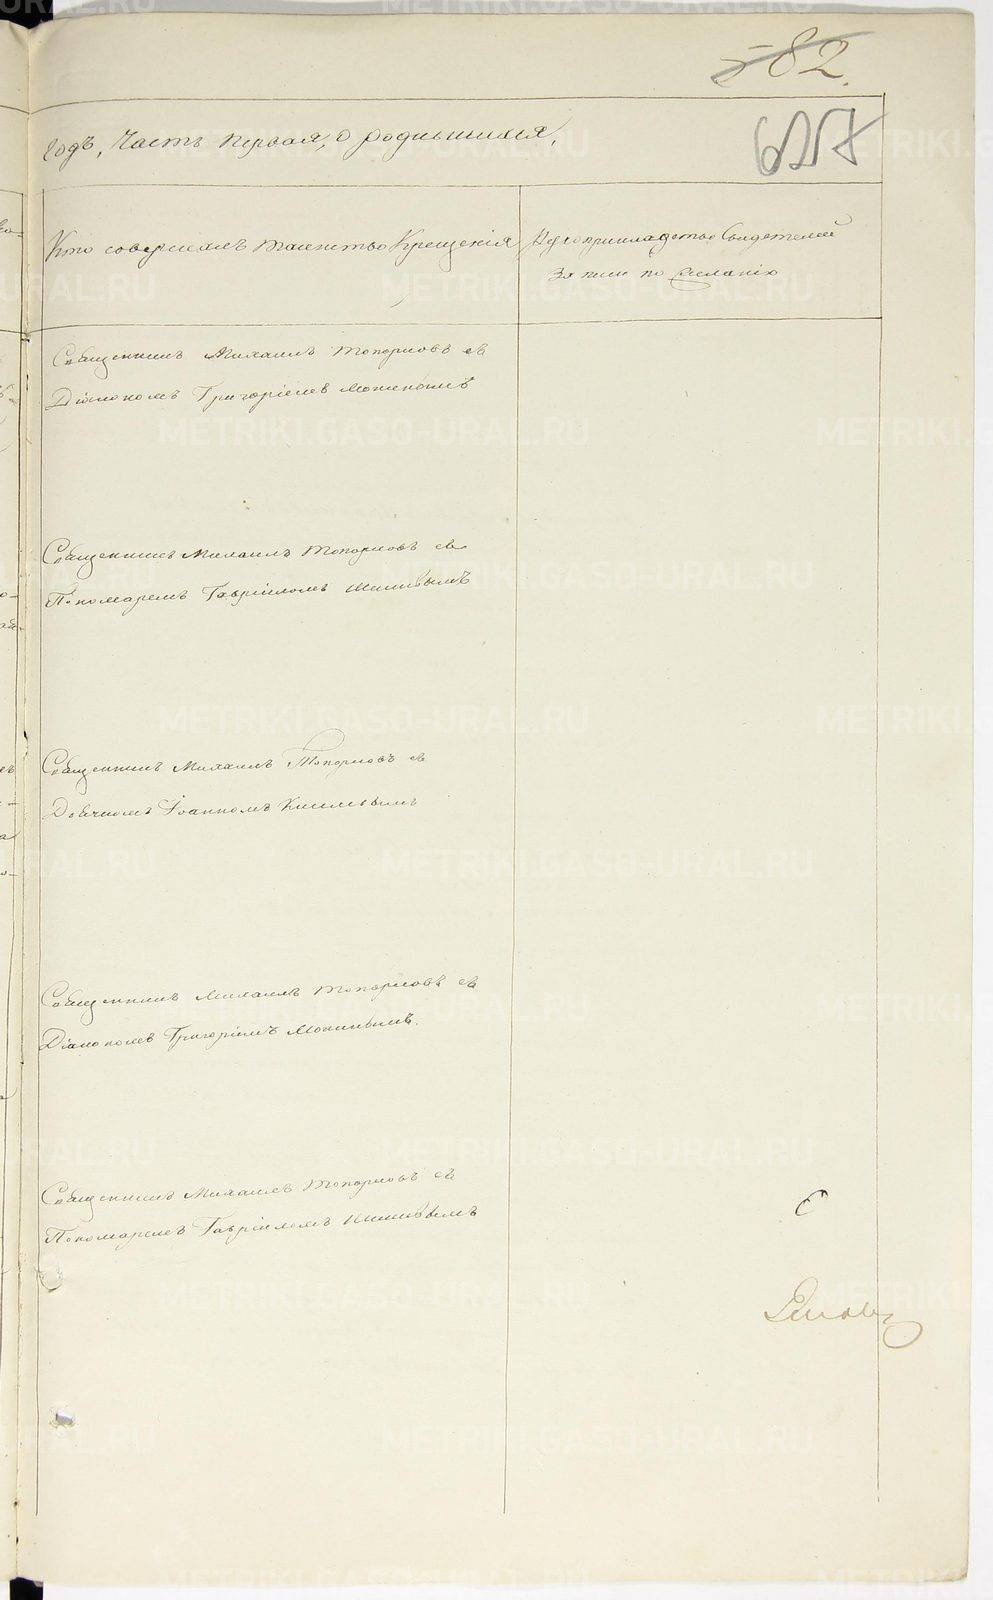 582.
годъ, Часть первая, о родившихся,
Кто совершалъ таинство Крещенія
Рукоприкладство Свидетелей
записи по желанію
Священникъ Михаилъ Топорковъ съ
Діакономъ Григоріемъ
Священникъ Михаилъ Топорковъ съ
Пономаремъ Гавріиломъ
Священникъ Михаилъ Топорковъ съ
Дьячкомъ Іоанномъ
Священникъ Михаилъ Топорковъ съ
Діакономъ Григоріемъ
Священникъ Михаилъ Топорковъ съ
Пономаремъ Гавріиломъ
METRIKI.GASO-URAL.RU